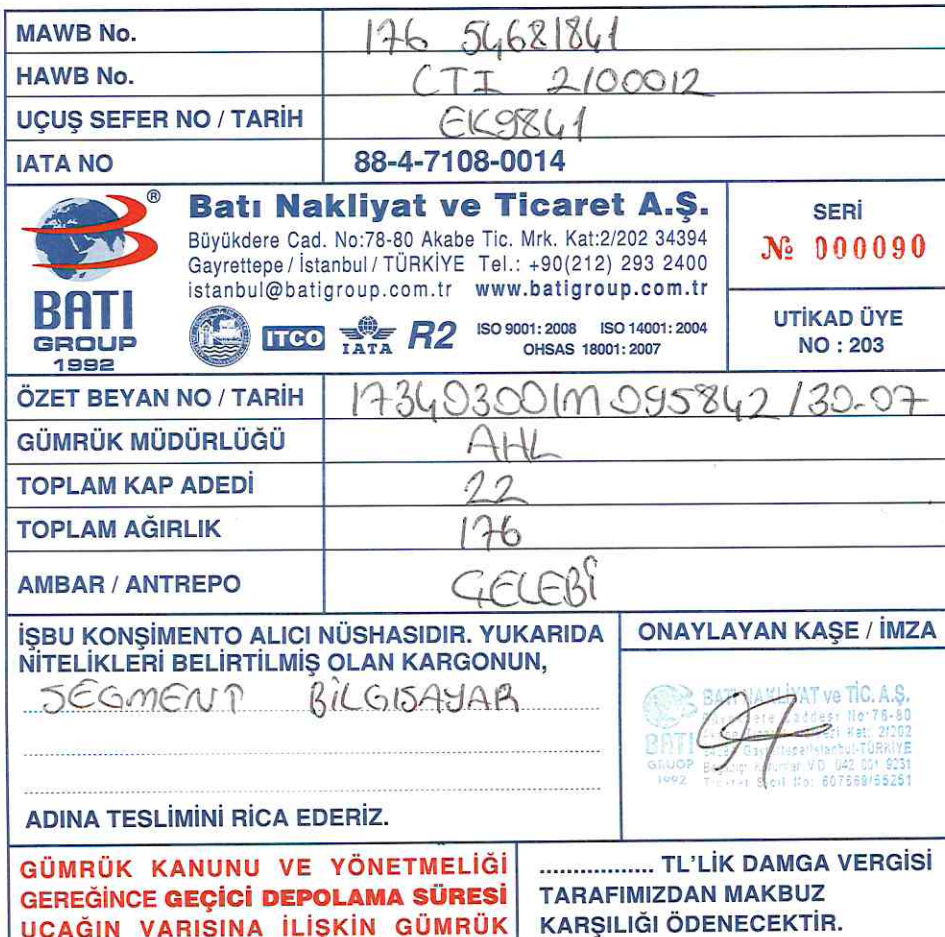 MAWB No. 176 54681841
HAWB No. CTI 2100012
UÇUŞ SEFER NO / TARİH EK9841
IATA NO 88-4-7108-0014
Batı Nakliyat ve Ticaret A.Ş.
Büyükdere Cad. No:78-80 Akabe Tic. Mrk. Kat:2/202 34394
Gayrettepe / İstanbul / TÜRKİYE Tel.: +90(212) 293 2400
istanbul@batigroup.com.tr www.batigroup.com.tr
®
BATI
GROUP
1992
ITCO IATA R2 ISO 9001: 2008 ISO 14001: 2004
OHSAS 18001: 2007
SERİ
№ 000090
UTİKAD ÜYE
NO : 203
ÖZET BEYAN NO / TARİH 17340300IM095842 / 30.07
GÜMRÜK MÜDÜRLÜĞÜ AHL
TOPLAM KAP ADEDİ 22
TOPLAM AĞIRLIK 176
AMBAR / ANTREPO ÇELEBİ
İŞBU KONŞİMENTO ALICI NÜSHASIDIR. YUKARIDA
NİTELİKLERİ BELİRTİLMİŞ OLAN KARGONUN,
SEGMENT BİLGİSAYAR
ADINA TESLİMİNİ RİCA EDERİZ.
ONAYLAYAN KAŞE / İMZA
BATI NAKLİYAT ve TİC. A.Ş.
No:76-80
BATI
GRUOP
1992
GÜMRÜK KANUNU VE YÖNETMELİĞİ
GEREĞİNCE GEÇİCİ DEPOLAMA SÜRESİ
UÇAĞIN VARIŞINA İLİŞKİN GÜMRÜK
................. TL'LİK DAMGA VERGİSİ
TARAFIMIZDAN MAKBUZ
KARŞILIĞI ÖDENECEKTİR.